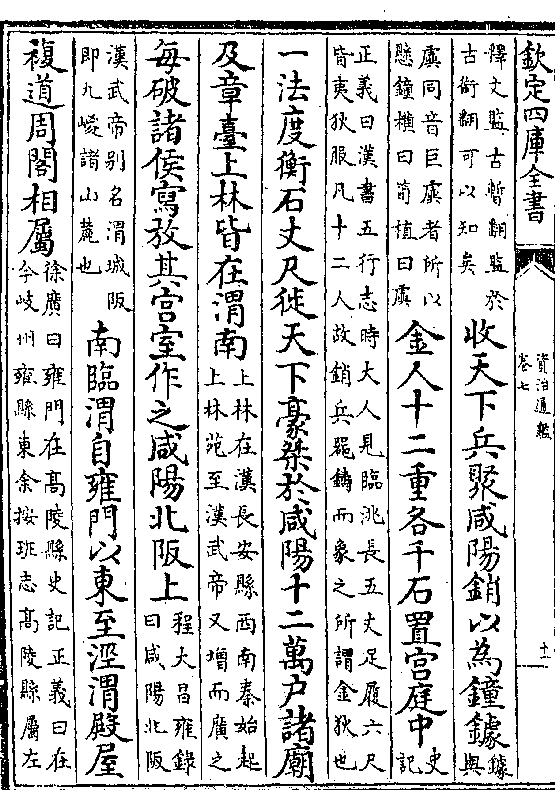 欽定四庫全書
資治通鑑
卷七
十一
釋文監古暫翻監於
古銜翻可以知矣
收天下兵聚咸陽銷以為鐘鐻
鐻
與
虡同音巨虡者所以
懸鐘橫曰筍植曰虡
金人十二重各千石置宫庭中
史
記
正義曰漢書五行志時大人見臨洮長五丈足履六尺
皆夷狄服凡十二人故銷兵器鑄而象之所謂金狄也
一法度衡石丈尺徙天下豪桀於咸陽十二萬户諸廟
及章臺上林皆在渭南
上林在漢長安縣西南秦始起
上林苑至漢武帝又增而廣之
每破諸侯寫放其宫室作之咸陽北阪上
程大昌雍錄
曰咸陽北阪
漢武帝别名渭城阪
即九嵕諸山麓也
南臨渭自雍門以東至涇渭殿屋
複道周閣相屬
徐廣曰雍門在高陵縣史記正義曰在
今岐州雍縣東余按班志高陵縣屬左